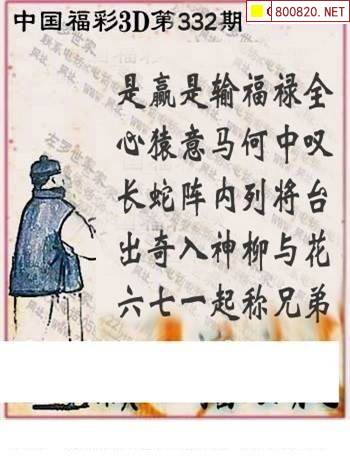 中国福彩3D第332期
800820.NET
是赢是输福禄全
心猿意马何中叹
长蛇阵内列将台
出奇入神柳与花
六七一起称兄弟